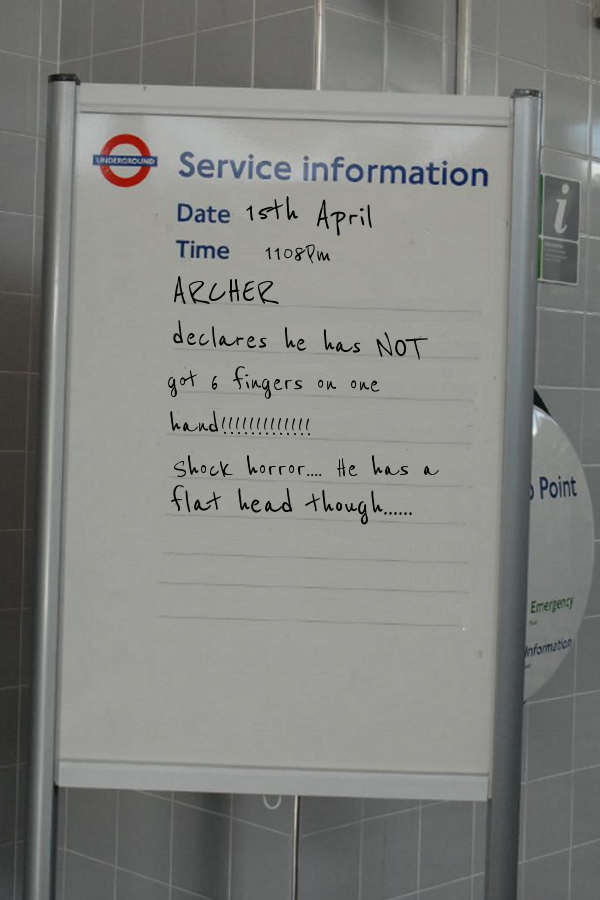 UNDERGROUND
Service information
Date 15th April
Time 1108Pm
ARCHER
declares he has NOT
got 6 fingers on one
hand!!!!!!!!!!!!!
Shock horror.... He has a
flat head though......
i
Point
Emergency
Information